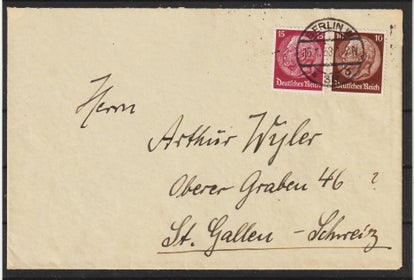 15 10
Deutsches Reich Deutsches Reich
BERLIN W
Herrn
Arthur Wyler
Oberer Graben 46 ?
St. Gallen - Schweiz